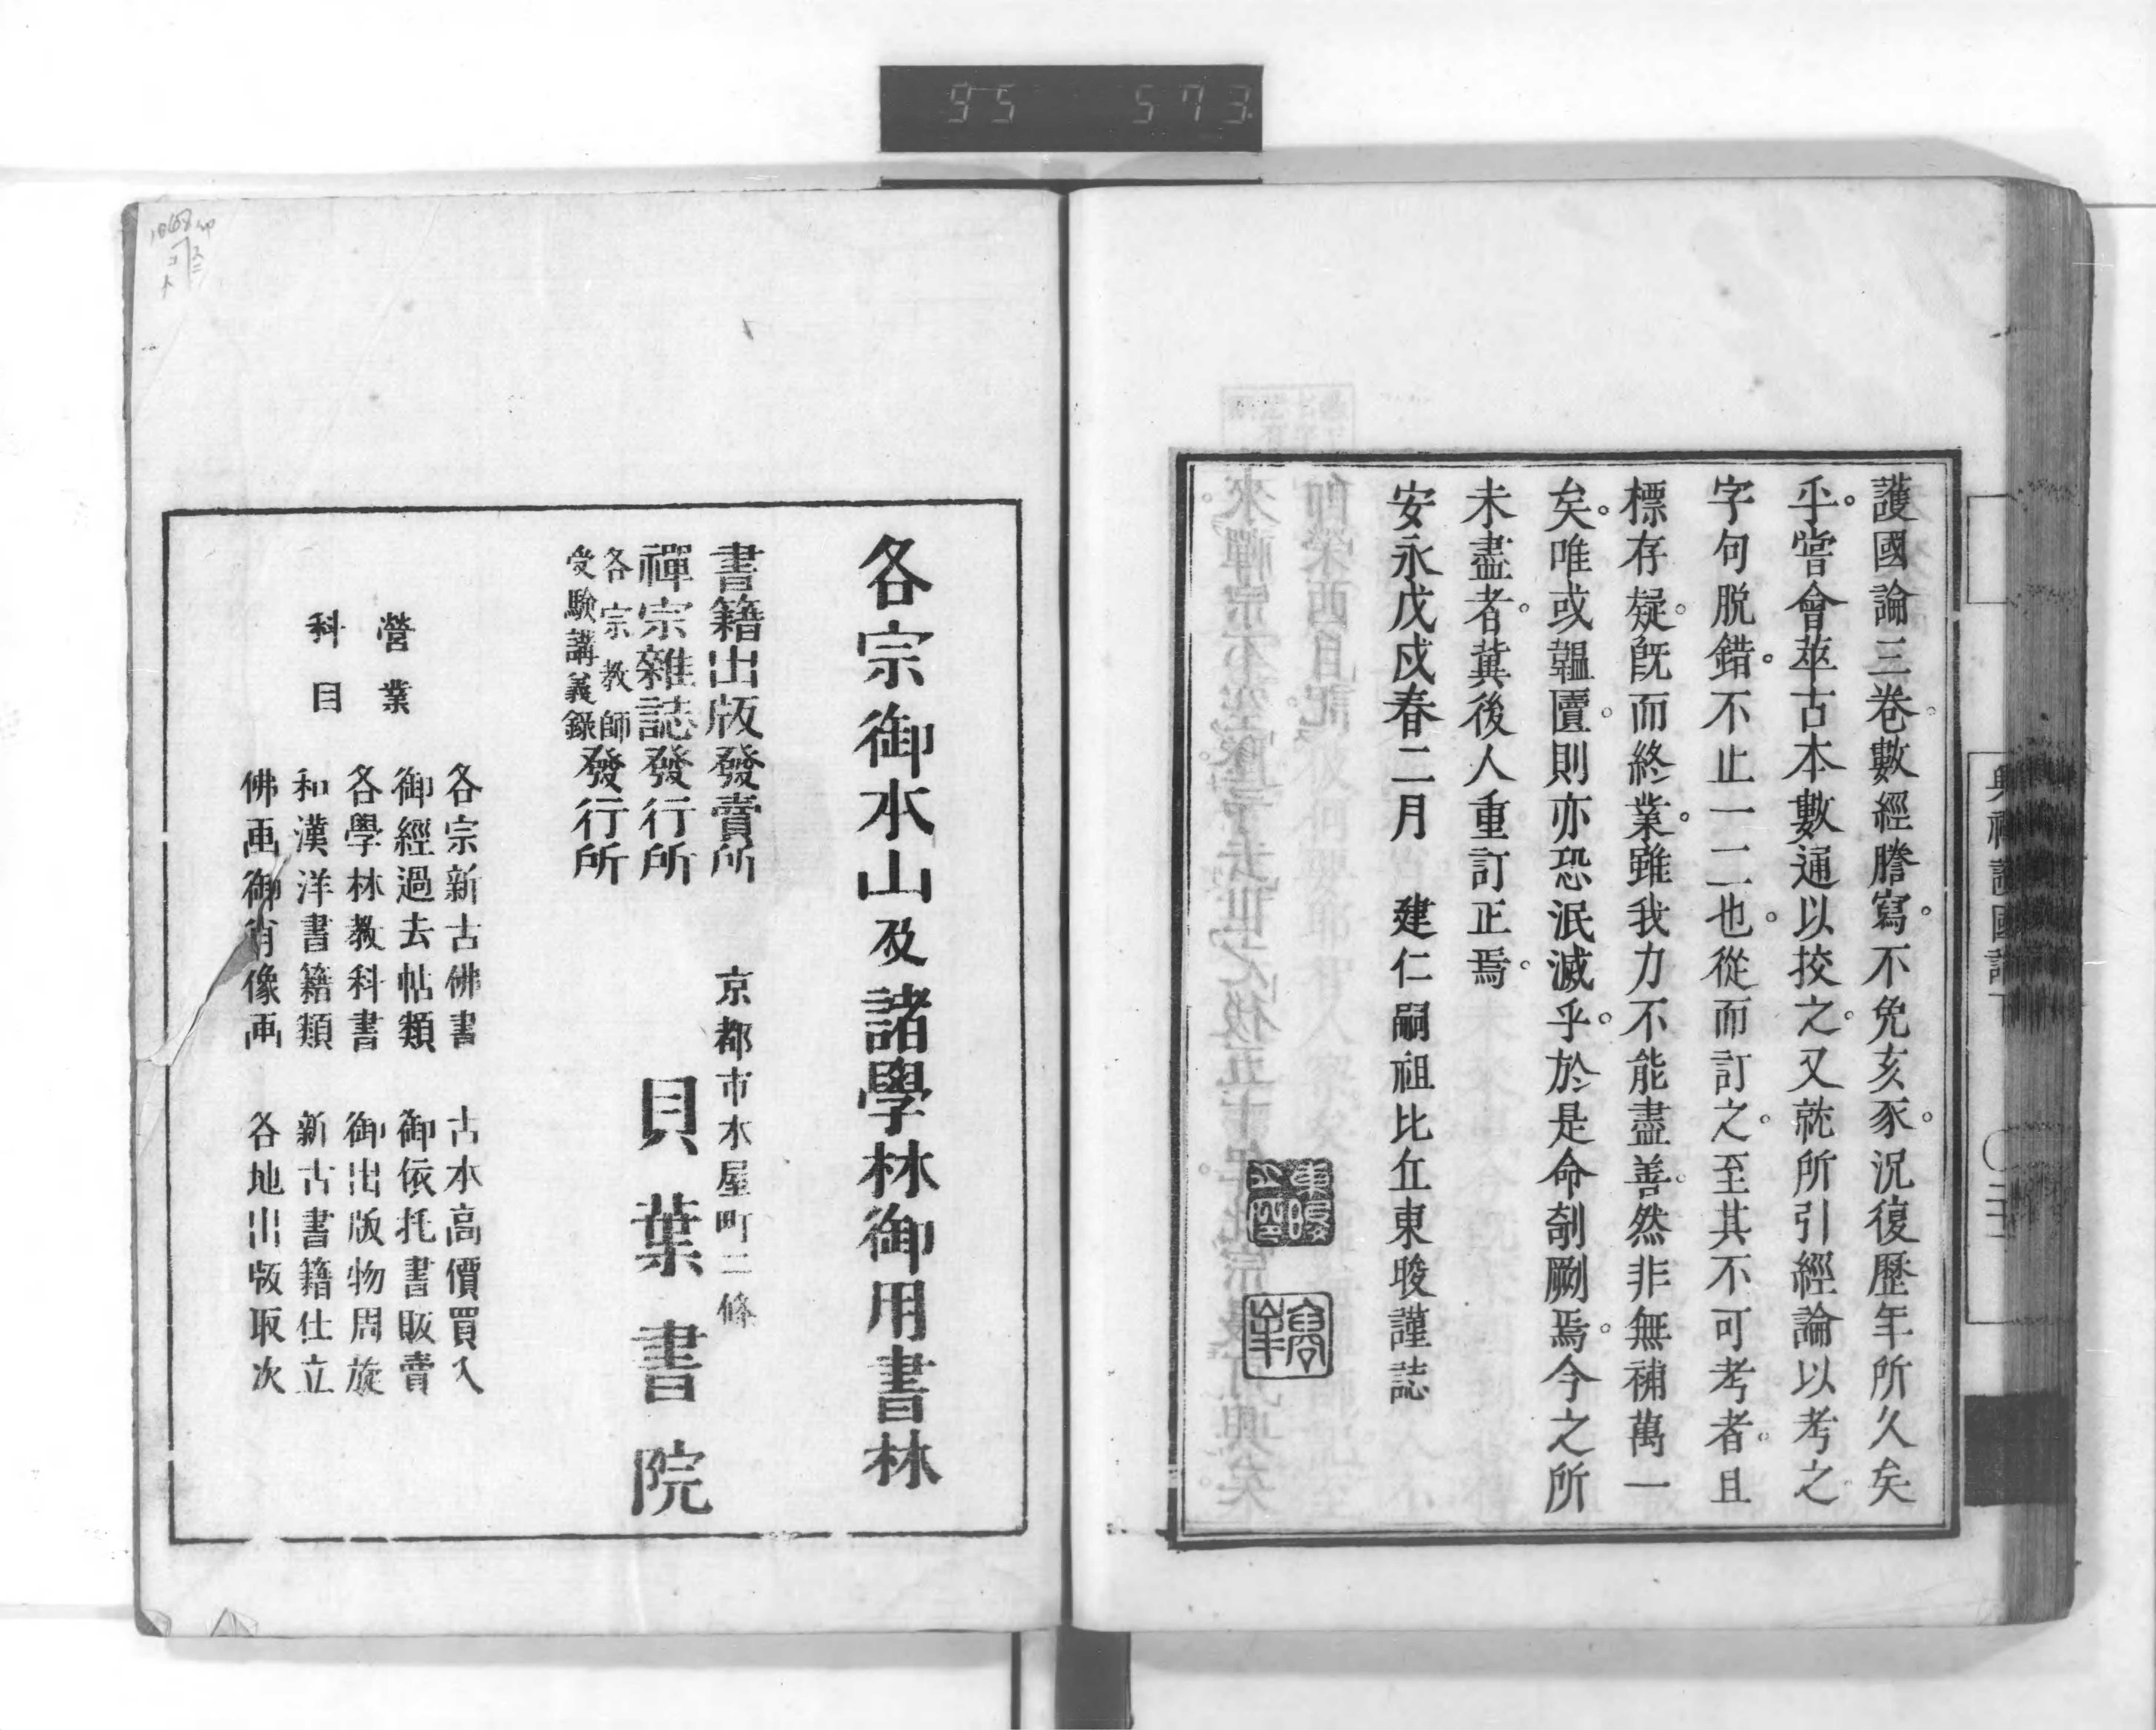 95 573
護國論三巻。數經謄寫。不免亥豕。況復歷年所久矣
乎。嘗會萃古本數通以挍之。又就所引經論以考之。
字句脱錯。不止一二也。從而訂之。至其不可考者。且
標存疑。既而終業。雖我力不能盡善。然非無補萬一
矣。唯或韞匵。則亦恐泯滅乎。於是命剞劂焉。今之所
未盡者。冀後人重訂正焉。
安永戊戌春二月　建仁嗣祖比丘東晙謹誌
各宗御本山及諸學林御用書林
書籍出版發賣所
禪宗雜誌發行所
各宗教師
受驗講義錄
發行所
京都市木屋町二條
貝葉書院
營業
科目
各宗新古佛書　古本高價買入
御經過去帖類　御依托書販賣
各學林教科書　御出版物周旋
和漢洋書籍類　新古書籍仕立
佛画御肖像画　各地出版取次